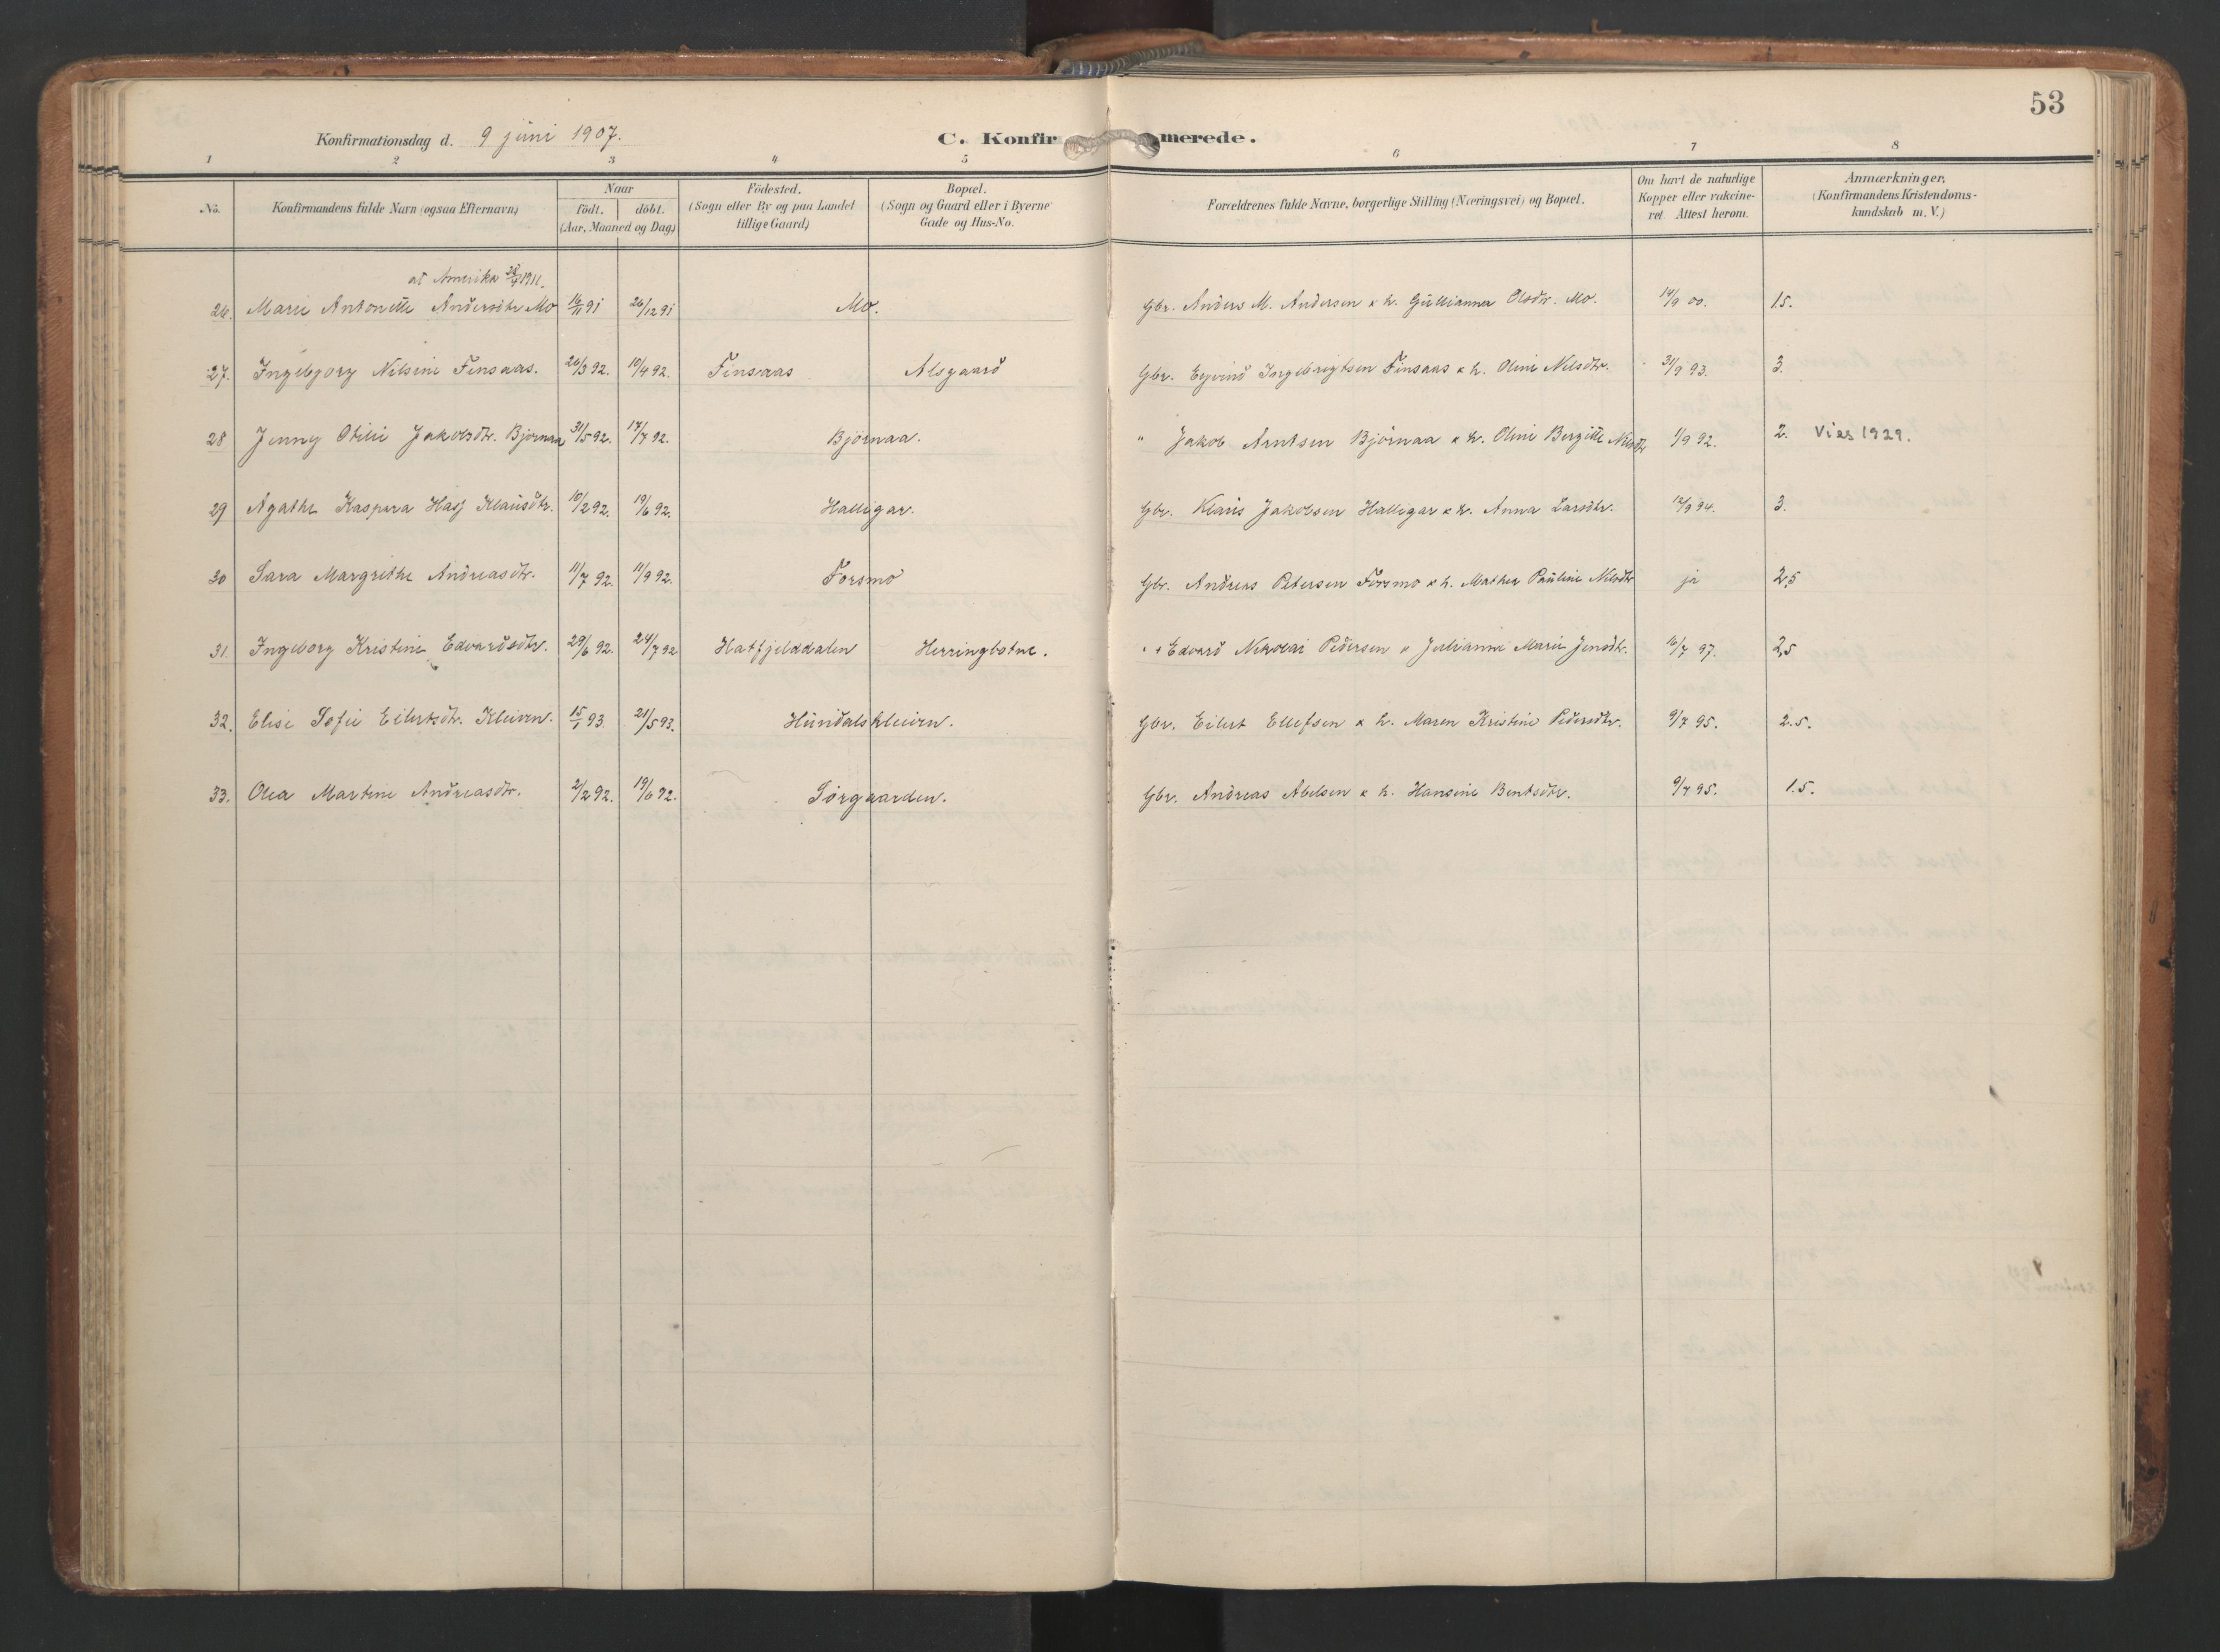 53
Konfirmationsdag d. 9 juni 1907.
C. Konfirmerede.
1 2 3 4 5 6 7 8
No. Konfirmandens fulde Navn (ogsaa Efternavn) Naar födt. döbt. (Aar, Maaned og Dag) Födested. (Sogn eller By og paa Landet tillige Gaard) Bopæl. (Sogn og Gaard eller i Byerne Gade og Hus-No. Forældrenes fulde Navne, borgerlige Stilling (Næringsvei) og Bopæl. Om havt de naturlige Kopper eller vakcineret. Attest herom. Anmærkninger, (Konfirmandens Kristendomskundskab m. V.)
at Amerika 1911.
26. Marie Antonette Andersdtr Mo 16/11 91 26/12 91 Mo. Gbr. Anders M. Andersen & h. Gullianna Olsdr. Mo. 14/9 00. 1.5.
27. Ingebjorg Nilsine Finsaas. 26/3 92. 10/4 92. Finsaas Alsgaard Gbr. Eyvind Ingebrigtsen Finsaas & h. Oline Nilsdtr. 31/9 93. 3.
28 Jenny Otilie Jakobsdtr. Bjørnaa 31/5 92. 17/7 92. Bjørnaa. " Jakob Arntsen Bjørnaa & h. Oline Bergitte Nilsdtr 1/9 92. 2. Vies 1929.
29 Agathe Kaspara Hasj Klausdtr. 10/2 92. 19/6 92. Halligar. Gbr. Klaus Jakobsen Halligar & h. Anna Larsdtr. 17/9 94. 3.
30 Sara Margrethe Andreasdtr. 11/7 92. 11/9 92. Forsmo Gbr. Andreas Petersen Forsmo & h. Mathea Pauline Nilsdtr ja 2,5
31. Ingeborg Kristine Edvardsdtr. 29/6 92. 24/7 92 Hatfjelddalen Herringbotne. " + Edvard Nikolai Pedersen & Julianne Marie Jensdtr. 16/7 97. 2,5
32. Elise Sofie Eilertsdtr. Kleiven. 15/1 93 21/5 93. Hundalskleiven. Gbr. Eilert Ellefsen & h. Maren Kristine Pedersdtr. 9/7 95. 2.5.
33. Olea Martine Andreasdtr. 2/2 92. 19/6 92. Sørgaarden. Gbr. Andreas Abelsen & h. Hansine Bentsdtr. 9/7 95. 1.5.